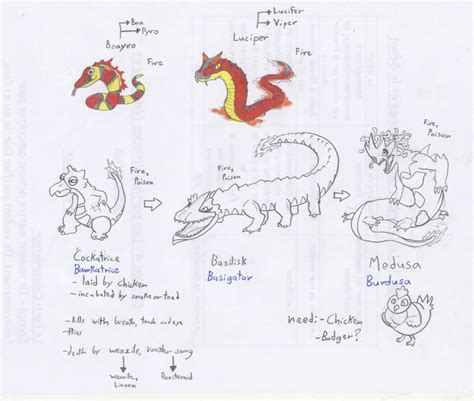 Boa
Pyro
Boayro
Fire
Lucifer
Viper
Luciper
Fire
Fire,
Poison
Fire,
Poison
Fire,
Poison
Cockatrice
- laid by chicken
- incubated by snake or toad
- kills with breath, touch and eye
- flies
- death by weazle, rooster song
Basilisk
Basigator
Medusa
Burdusa
need: - Chicken
- Badger?